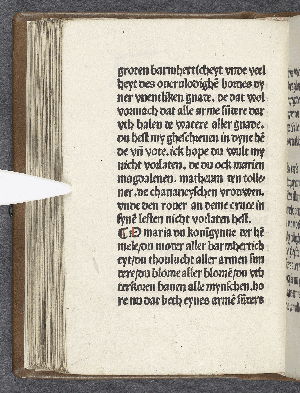 groten barmherticheyt vnde veel
heyt des overvlodighē bornes dy
ner vnentliken gnade. de dat wol
vormach dat alle arme sūdere dar
vth halen de watere aller gnade.
du hest my gheschreuen in dyne hē
de vñ vote. ick hape du wult my
nicht vorlaten. de du ock marien
magdalenen. matheum den tolle
ner. de chananeyschen vrouwen.
vnde den rouer an deme cruce in
synē lesten nicht vorlaten hest.
O maria du konigynne der hē
mele/du moder aller barmhertich
eyt/du thoulucht aller armen sun
dere/du blome aller blomē/du vth
erkoren bauen alle mynschen. ho
re nu dat beth eynes armē sūders